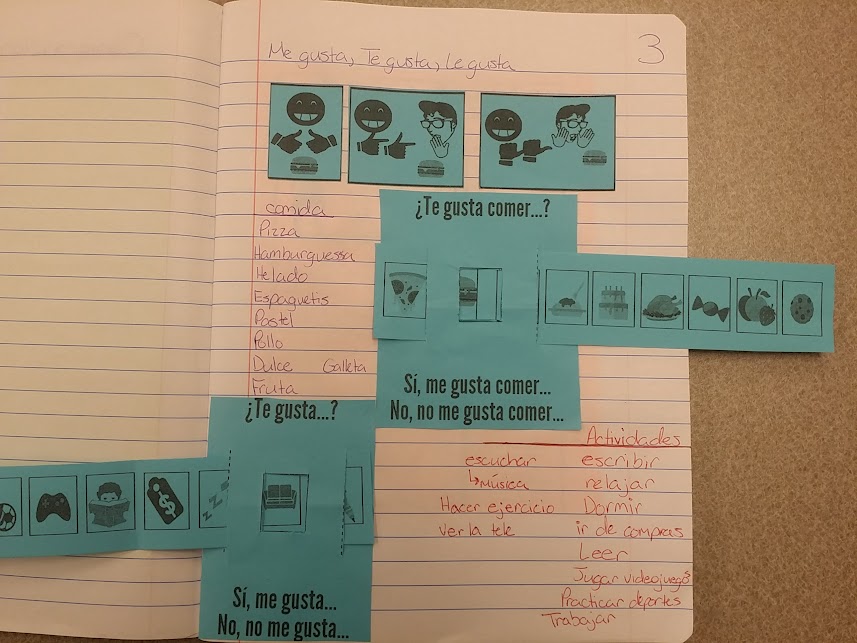 3
Me gusta, Te gusta, Le gusta
comida
Pizza
Hamburguessa
Helado
Espaguetis
Pastel
Pollo
Dulce Galleta
Fruta
¿Te gusta comer...?
Sí, me gusta comer...
No, no me gusta comer...
¿Te gusta...?
Sí, me gusta...
No, no me gusta...
Actividades
escuchar escribir
↳música relajar
Hacer ejercicio Dormir
ver la tele ir de compras
Leer
Jugar videojuegos
Practicar deportes
Trabajar